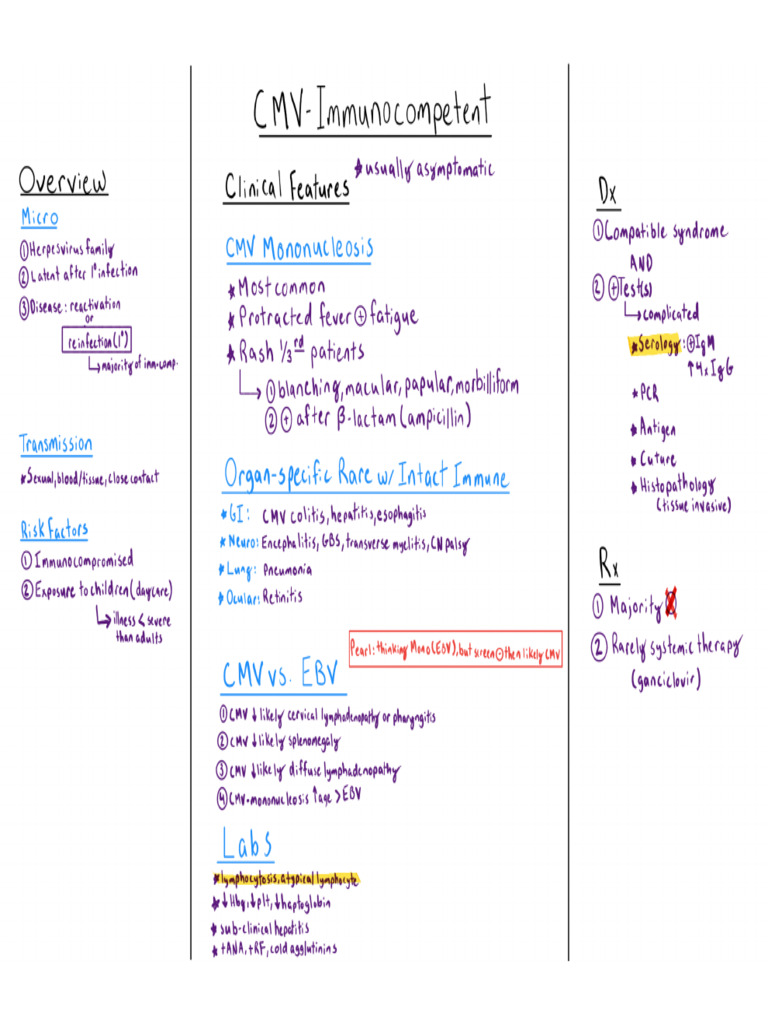 CMV-Immunocompetent
Overview
Micro
① Herpesvirus family
② Latent after 1° infection
③ Disease: reactivation
or
reinfection (1°)
↳ majority of imm.comp.
Transmission
* Sexual, blood/tissue, close contact
Risk Factors
① Immunocompromised
② Exposure to children (daycare)
↳ illness < severe
than adults
Clinical Features
* usually asymptomatic
CMV Mononucleosis
* Most common
* Protracted fever ⊕ fatigue
* Rash 1/3rd patients
↳ ① blanching, macular, papular, morbilliform
② ⊕ after β-lactam (ampicillin)
Organ-specific Rare w/ Intact Immune
* GI: CMV colitis, hepatitis, esophagitis
* Neuro: Encephalitis, GBS, transverse myelitis, CN palsy
* Lung: Pneumonia
* Ocular: Retinitis
Pearl: thinking Mono (EBV), but screen ⊖ then likely CMV
CMV vs. EBV
① CMV ↓ likely cervical lymphadenopathy or pharyngitis
② CMV ↓ likely splenomegaly
③ CMV ↓ likely diffuse lymphadenopathy
④ CMV-mononucleosis ↑ age > EBV
Labs
* lymphocytosis, atypical lymphocyte
* ↓ Hbg, ↓ plt, ↓ haptoglobin
* sub-clinical hepatitis
* +ANA, +RF, cold agglutinins
Dx
① Compatible syndrome
AND
② ⊕ Test(s)
↳ complicated
* Serology: ⊕ IgM
↑ 4x IgG
* PCR
* Antigen
* Cuture
* Histopathology
(tissue invasive)
Rx
① Majority
② Rarely systemic therapy
(ganciclovir)